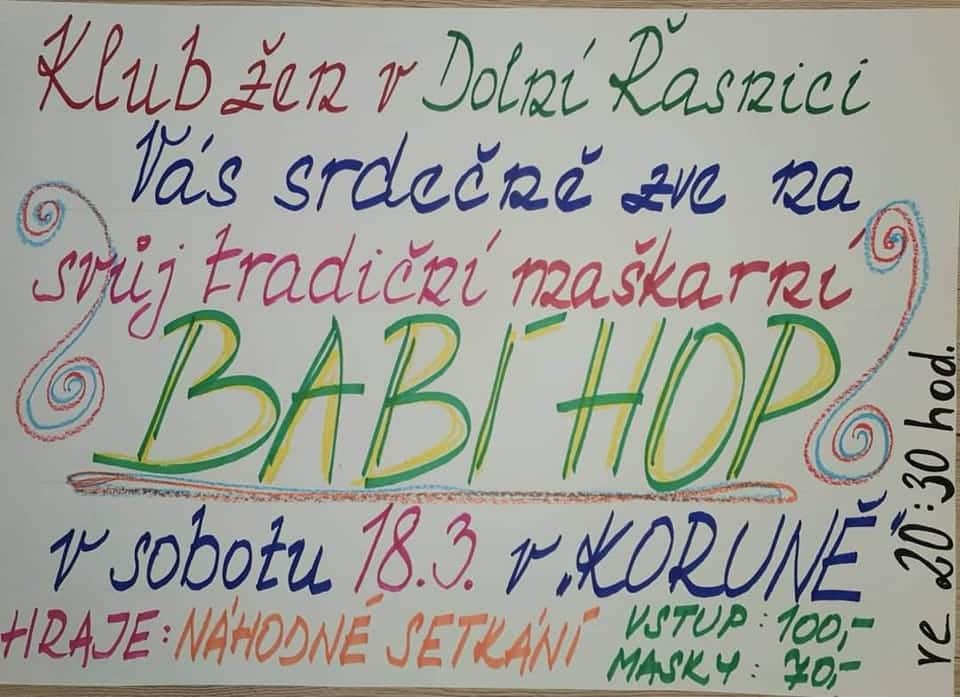 Klub žen v Dolní Řasnici
Vás srdečně zve na
svůj tradiční maškarní
BABÍ HOP
v sobotu 18.3. v „KORUNĚ“
ve 20:30 hod.
HRAJE: NÁHODNÉ SETKÁNÍ
VSTUP: 100,-
MASKY: 70,-